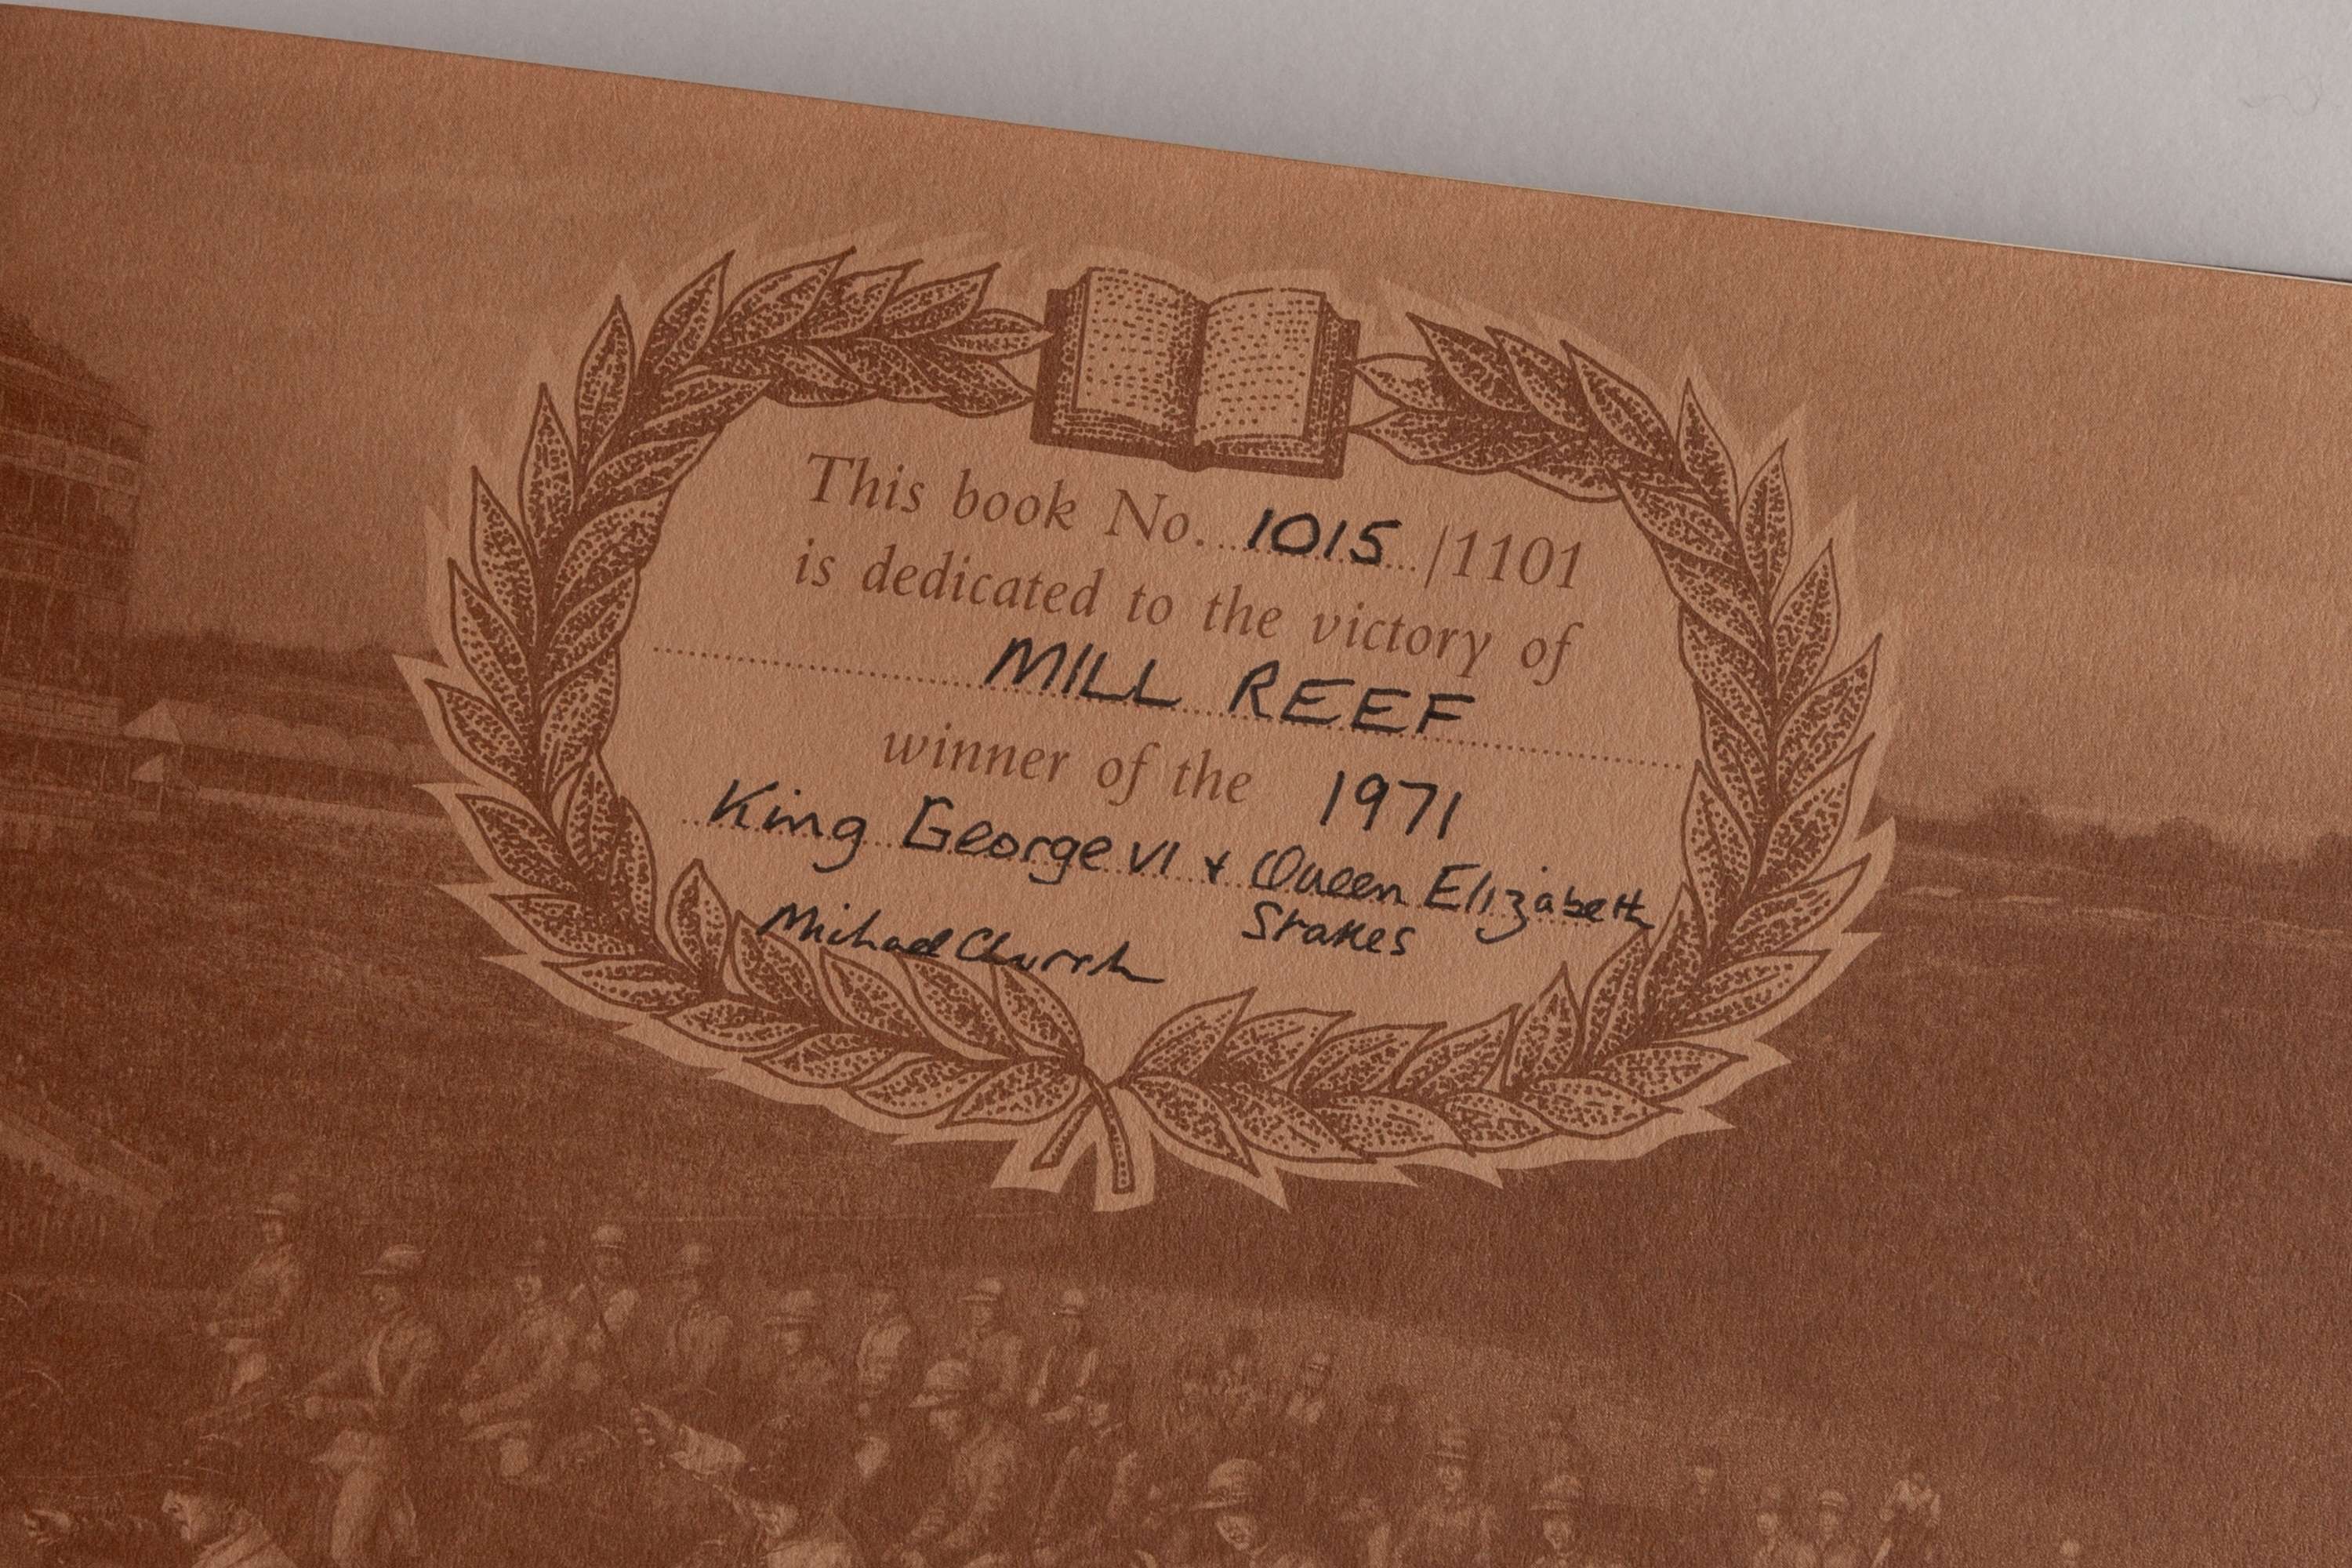 This book No. 1015 /1101
is dedicated to the victory of
MILL REEF
winner of the 1971
King George VI + Queen Elizabeth
Stakes
Michael Church